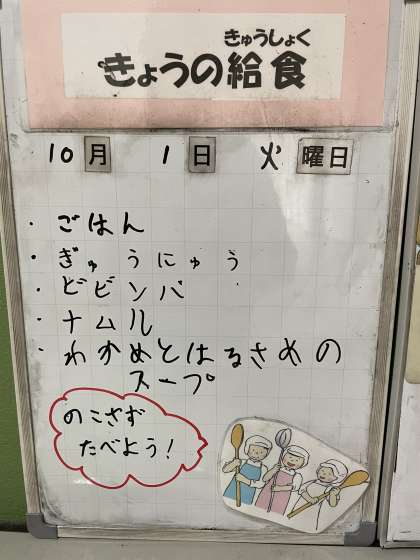 きゅうしょく
きょうの給食
10月 1日 火曜日
・ごはん
・ぎゅうにゅう
・ビビンバ
・ナムル
・わかめとはるさめの
スープ
のこさず
たべよう!